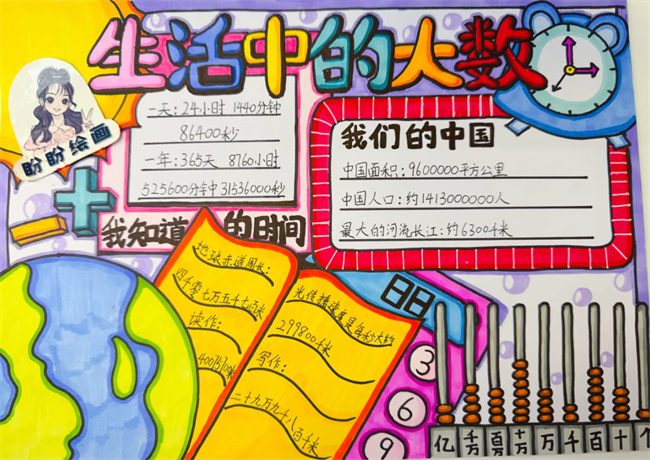 生活中的大数
盼盼绘画
一天:24小时 1440分钟
86400秒
一年:365天 8760小时
525600分钟 31536000秒
我知道的时间
我们的中国
中国面积:9600000平方公里
中国人口:约1413000000人
最大的河流长江:约6300千米
地球赤道周长:
四千零七万五千七百米
读作:
光传播速度是每秒大约
299800千米
写作:
二十九万九千八百千米
3
6
9
亿 千万 百万 十万 万 千 百 十 个